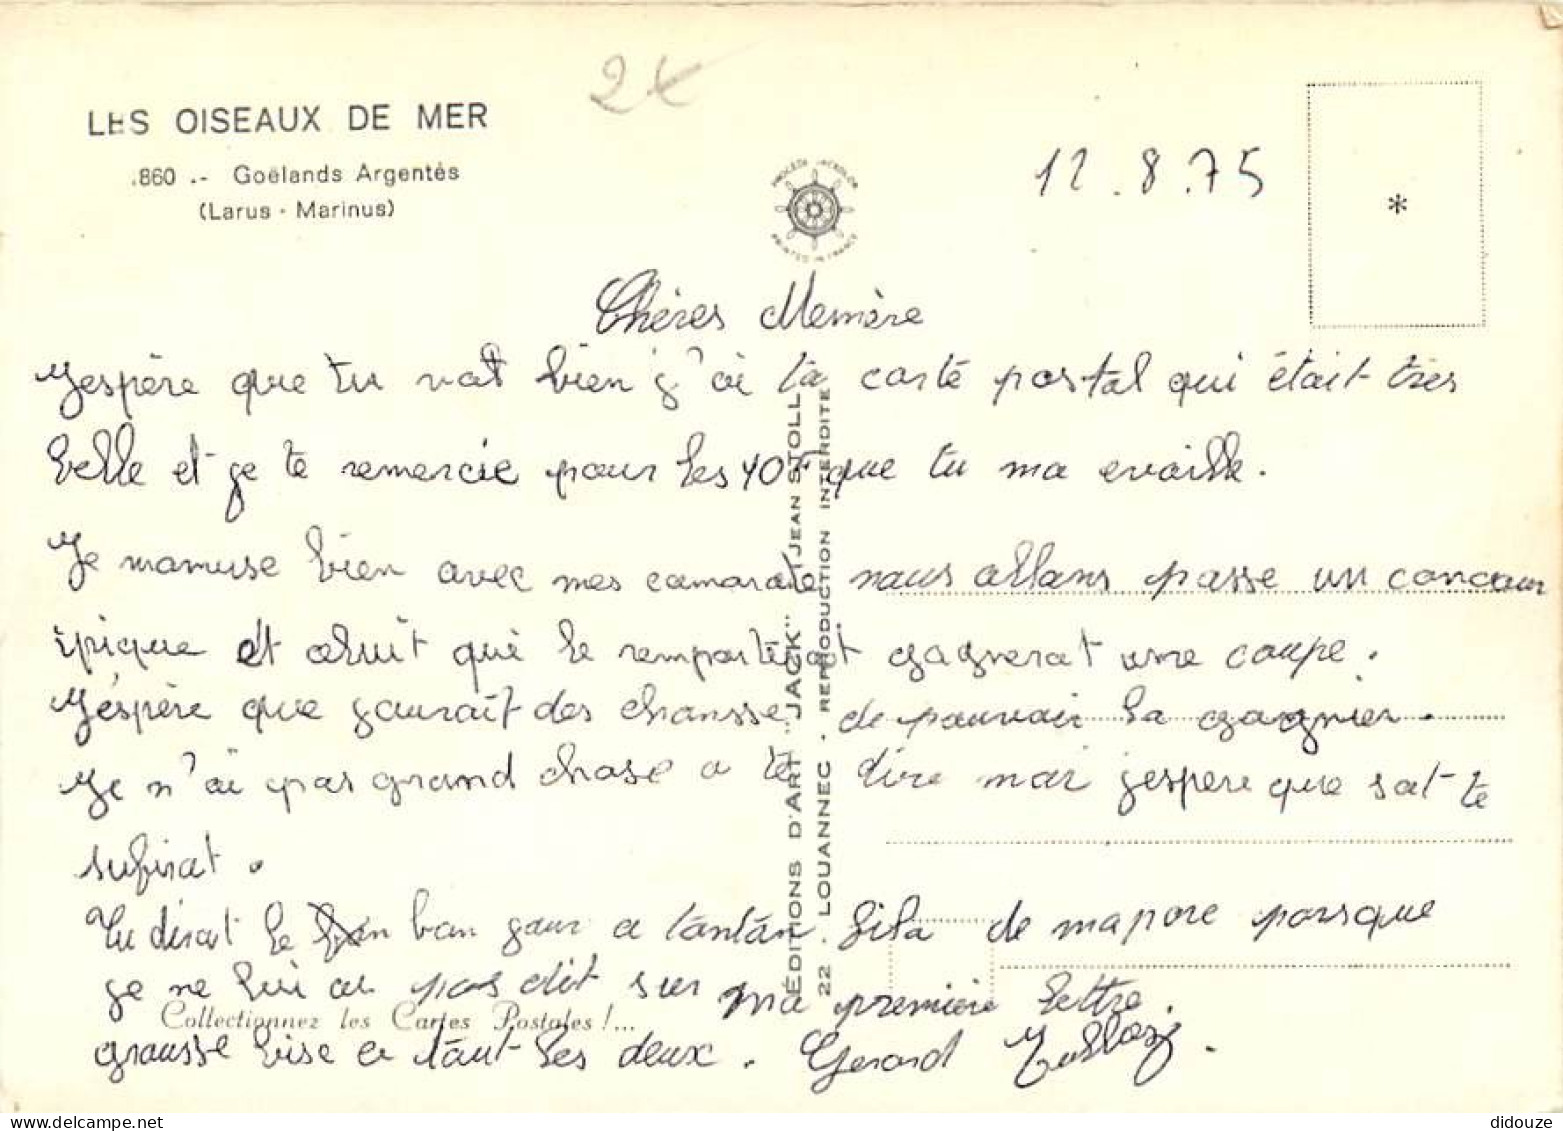 2€
LES OISEAUX DE MER
.860 .- Goëlands Argentés
(Larus - Marinus)
PROCÉDÉ JACKOLOR
PRINTED IN FRANCE
12.8.75
*
Chères Memère
J'espère que tu vat bien j'ai ta carte postal qui était très
belle et je te remercie pour les 10F que tu ma evoille.
Je mamuse bien avec mes camarade nous allons passe un concour
ipique et celuit qui le remporterat gagnerat une coupe.
J'éspère que jaurait des chansse de pouvoir la gagnier.
Je n'ai pas grand chose a te dire mai jespere que sat te
sufirat.
Tu dirat le bon jour a tantan de mapore porsque
je ne lui ai pas dit sur ma premiere lettre.
grousse bise a tout les deux. Gerard
ÉDITIONS D'ART "JACK" JEAN STOLL
22 - LOUANNEC - REPRODUCTION INTERDITE
Collectionnez les Cartes Postales !...
didouze